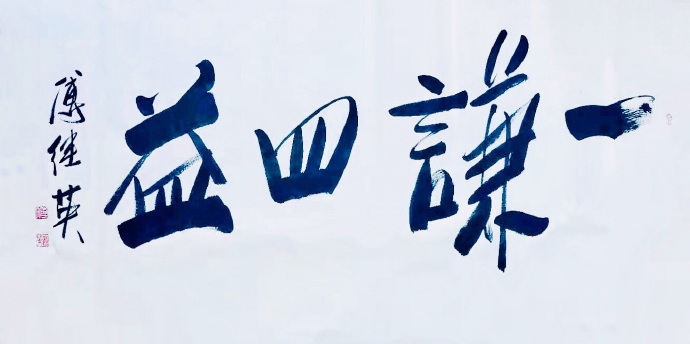 一謙四益
傅继英